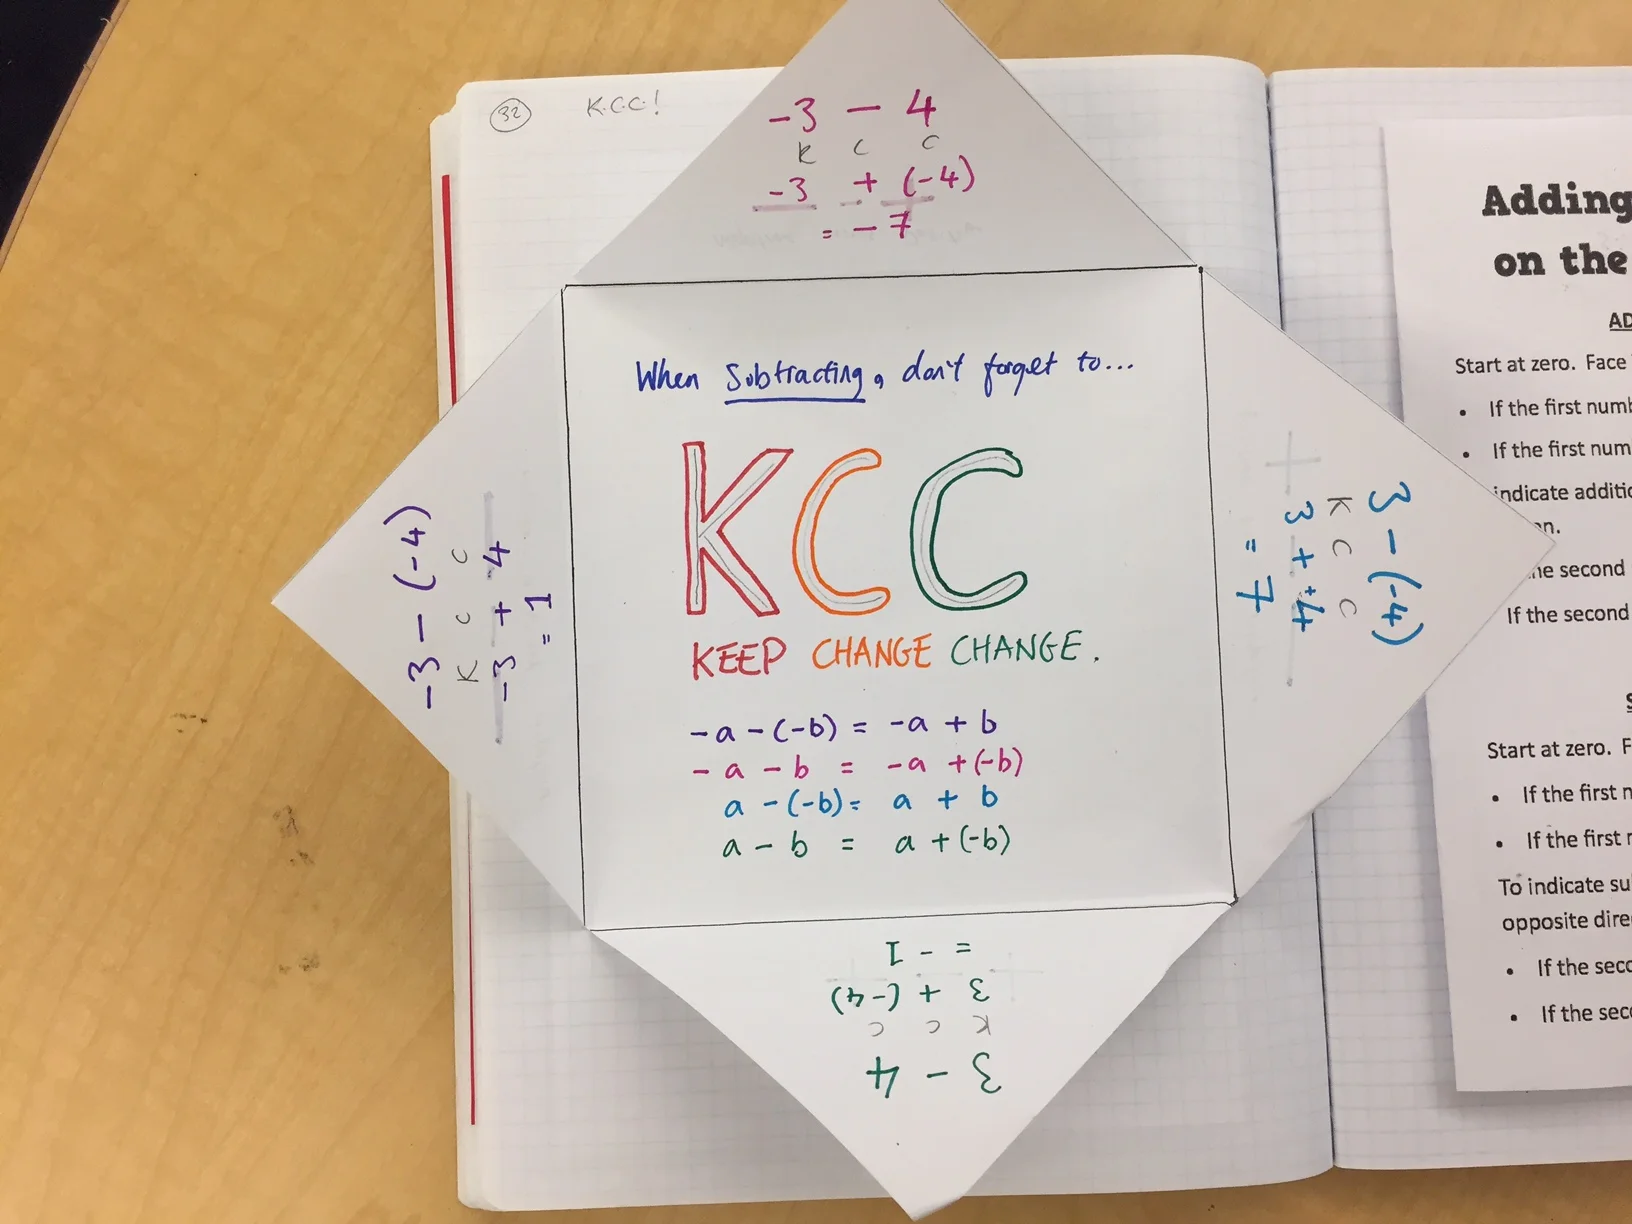 32
K.C.C!
-3 - 4
K C C
-3 + (-4)
= -7
When Subtracting, don't forget to...
KCC
KEEP CHANGE CHANGE.
-a - (-b) = -a + b
-a - b = -a + (-b)
a - (-b) = a + b
a - b = a + (-b)
-3 - (-4)
K C C
-3 + 4
= 1
3 - (-4)
K C C
3 + +4
= 7
3 - 4
K C C
3 + (-4)
= -1
Adding
on the
AD
Start at zero. Face
• If the first numb
• If the first num
indicate additio
n.
he second
If the second
S
Start at zero. F
• If the first n
• If the first r
To indicate su
opposite dire
• If the seco
• If the seco